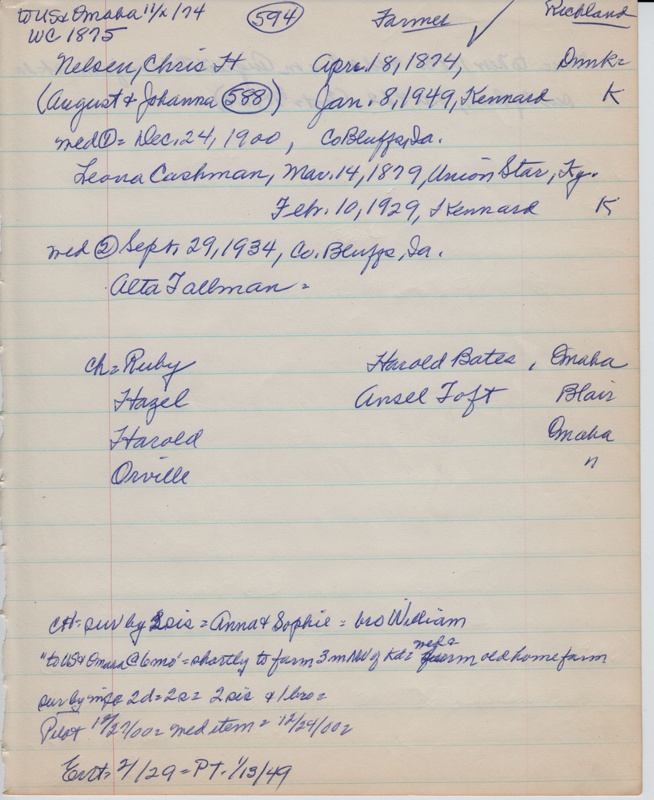 to US & Omaha 11/2/74 594 Farmer ✓ Richland
WC 1875
Nelsen, Chris H Apr. 18, 1874, Dnmk=
(August & Johanna 588) Jan. 8, 1949, Kennard K
med ①= Dec. 24, 1900, Co Bluffs, Ia.
Leona Cashman, Mar. 14, 1879, Union Star, Ky.
Feb. 10, 1929, Kennard K
med ② Sept. 29, 1934, Co. Bluffs, Ia.
Alta Tallman =
ch= Ruby Harold Bates, Omaha
Hazel Ansel Toft Blair
Harold Omaha
Orville "
CH= sur by 2 sis = Anna & Sophie = bro William
"to US & Omaha @ 6 mo" = shortly to farm 3 m NW of Kd= med= farm old home farm
sur by 2d= 2s= 2 sis & 1 bro=
Pilot 12/27/00= med item= 12/24/00=
Ent= 2/29= PT. 1/13/49